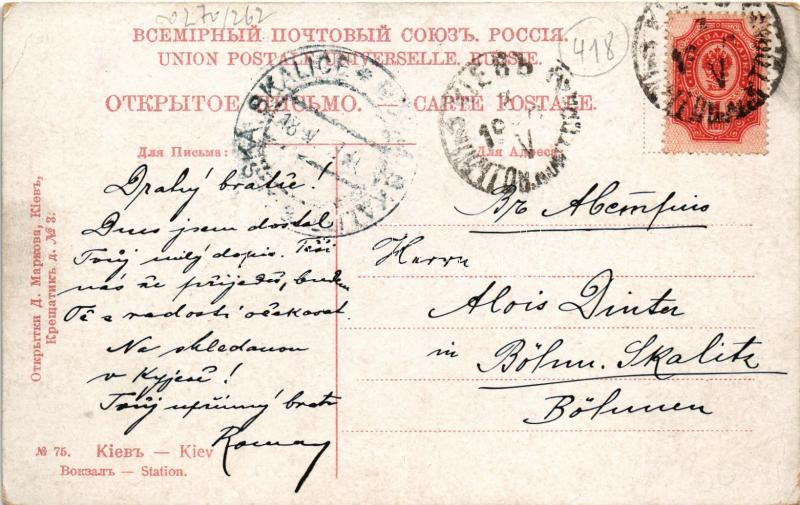 20270/262
418
ВСЕМІРНЫЙ ПОЧТОВЫЙ СОЮЗЪ. РОССІЯ.
UNION POSTALE UNIVERSELLE. RUSSIE.
ОТКРЫТОЕ ПИСЬМО. — CARTE POSTALE.
Для Письма:
Для Адреса:
КІЕВЪ
SKALICE
Drahý bratře!
Dnes jsem dostal
Tvůj milý dopis. Těší
nás že přijedeš, budem
Tě s radostí očekávat.
Na shledanou
v Kyjevě!
Tvůj upřímný bratr
Roman
Въ Австрію
Herrn
Alois Dinter
in Böhm. Skalitz
Böhmen
Открытки Д. Маркова, Кіевъ,
Крещатикъ д. № 3.
№ 75. Кіевъ — Kiev
Вокзалъ — Station.